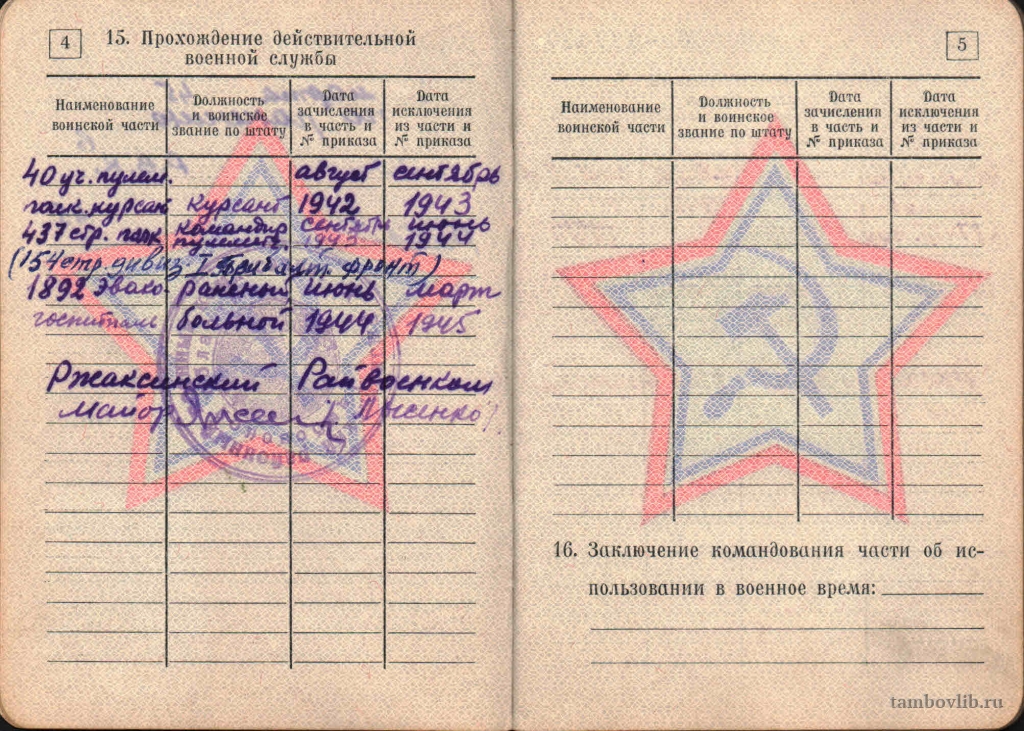 4
15. Прохождение действительной
военной службы
Наименование воинской части
Должность и воинское звание по штату
Дата зачисления в часть и № приказа
Дата исключения из части и № приказа
40 уч. пулем. август сентябрь
курсант 1942 1943
437 стр. полк командир сентябрь июнь
пулеметн. 1943 1944
(154 стр. дивиз. I Прибалт. фронт)
1892 Эвако раненый июнь март
госпиталь больной 1944 1945
Ржаксинский Райвоенком
майор
5
Наименование воинской части
Должность и воинское звание по штату
Дата зачисления в часть и № приказа
Дата исключения из части и № приказа
16. Заключение командования части об ис-
пользовании в военное время:
tambovlib.ru